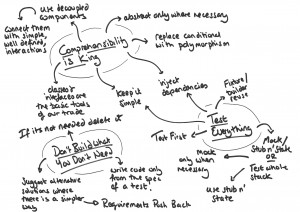 use decoupled
components
connect them
with simple,
well defined,
interactions
abstract only where necessary
Comprehensibility
is King
replace conditional
with polymorphism
classes &
interfaces are
the basic tools
of our trade
Keep it
Simple
inject
dependencies
Fixture/
builder reuse
If its not needed delete it
Test
Everything
Test First
Don't Build What
You Don't Need
Mock
only when
necessary
Mock/
Stub n' state
OR
Test whole
stack
use stub n'
state
Suggest alternative
solutions where
there is a simpler
way
Write code only
from the spec
of a test.
Requirements Push Back